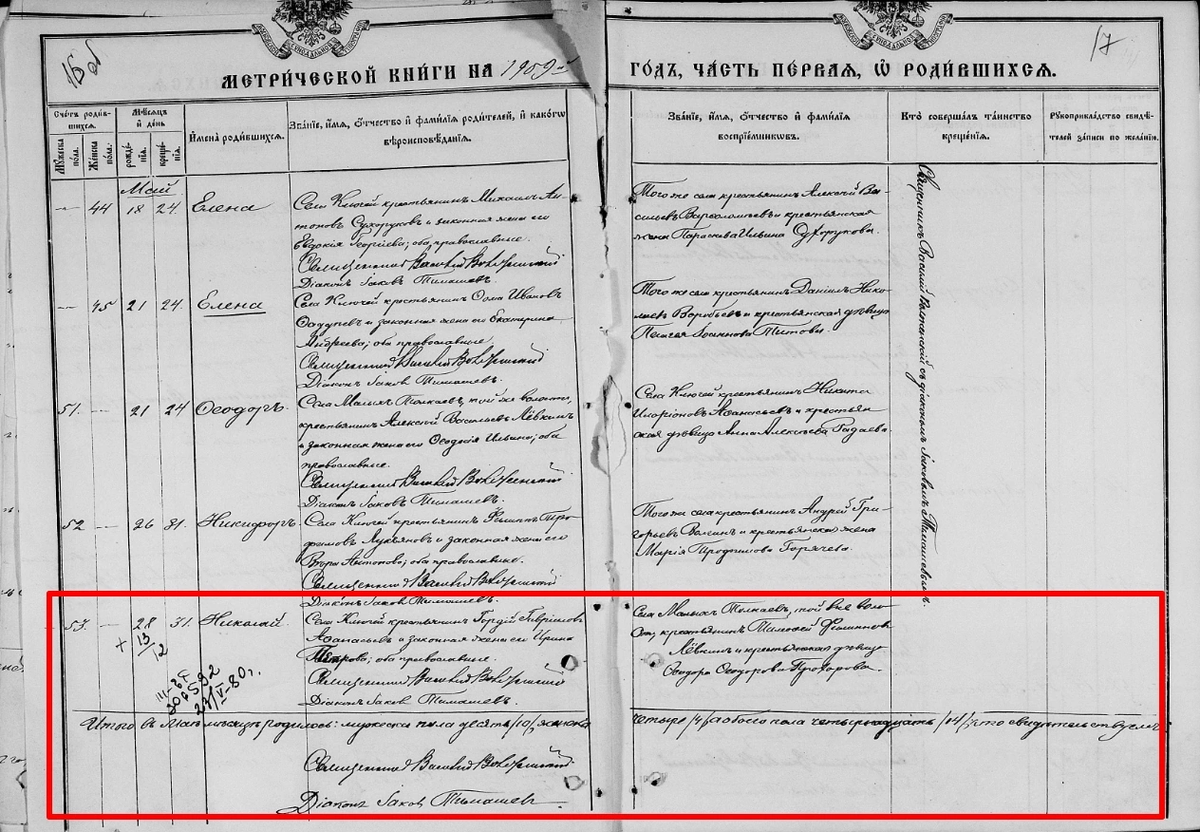 16 об
17
МЕТРИЧЕСКОЙ КНИГИ НА 1909й
ГОДЪ, ЧАСТЬ ПЕРВАЯ, Ѡ РОДИВШИХСЯ.
Счетъ родившихся.
Мужеска пола.
Женска пола.
Мѣсяцъ и день
рожденія.
крещенія.
Имена родившихся.
Званіе, имя, отчество и фамилія родителей, и какогѡ
вѣроисповѣданія.
Званіе, имя, отчество и фамилія
воспріемниковъ.
Кто совершалъ таинство
крещенія.
Рукоприкладство свидѣ-
телей записи по желанію.
Май
— 44 18 24. Елена
Села Ключей крестьянинъ Михаилъ Ан-
тоновъ Сухоруковъ и законная жена его
Евдокія Георгіева; оба православные.
Священникъ Василій
Діаконъ Іаковъ Тимашевъ.
Того же села крестьянинъ Алексѣй Ва-
сильевъ Варѳоломѣевъ и крестьянская
жена Параскева Ильина Сухорукова.
Священникъ Василій съ діакономъ Іаковомъ Тимашевымъ
— 45 21 24. Елена
Села Ключей крестьянинъ Ѳома Ивановъ
и законная жена его Екатерина
Андреева; оба православные.
Священникъ Василій
Діаконъ Іаковъ Тимашевъ.
Того же села крестьянинъ Даніилъ Нико-
лаевъ Воробьевъ и крестьянская дѣвица
Пелагея Іоаннова Титова.
51. — 21 24 Ѳеодоръ.
Села Малыхъ Толкаевъ, той же волости,
крестьянинъ Алексѣй Васильевъ Лёвкинъ
и законная жена его Ѳеодосія Ильина; оба
православные.
Священникъ Василій
Діаконъ Іаковъ Тимашевъ.
Села Ключей крестьянинъ Никита
Иларіоновъ Аѳанасьевъ и крестьян-
ская дѣвица Анна Алексѣева Гадаева.
52 — 26 31. Никифоръ
Села Ключей крестьянинъ Филиппъ Тро-
фимовъ Лукьяновъ и законная жена его
Вѣра Антонова; оба православные.
Священникъ Василій
Діаконъ Іаковъ Тимашевъ.
Того же села крестьянинъ Андрей Гри-
горьевъ и крестьянская жена
Марія Трофимова Горячева.
53. — 28 31. Николай.
+ 13/12
Села Ключей крестьянинъ Гордій Гавриловъ
Аѳанасьевъ и законная жена его Ирина
Петрова; оба православные.
Священникъ Василій
Діаконъ Іаковъ Тимашевъ.
Села Малыхъ Толкаевъ, той же воло-
сти, крестьянинъ Тимоѳей Филипповъ
Лёвкинъ и крестьянская дѣвица
Ѳеодора Ѳеодорова Прохорова.
Итого въ Маѣ мѣсяцѣ родилось: мужеска пола десять /10/, женска
четыре /4/, а обоего пола четырнадцать /14/, что свидѣтельствуемъ
Священникъ Василій
Діаконъ Іаковъ Тимашевъ